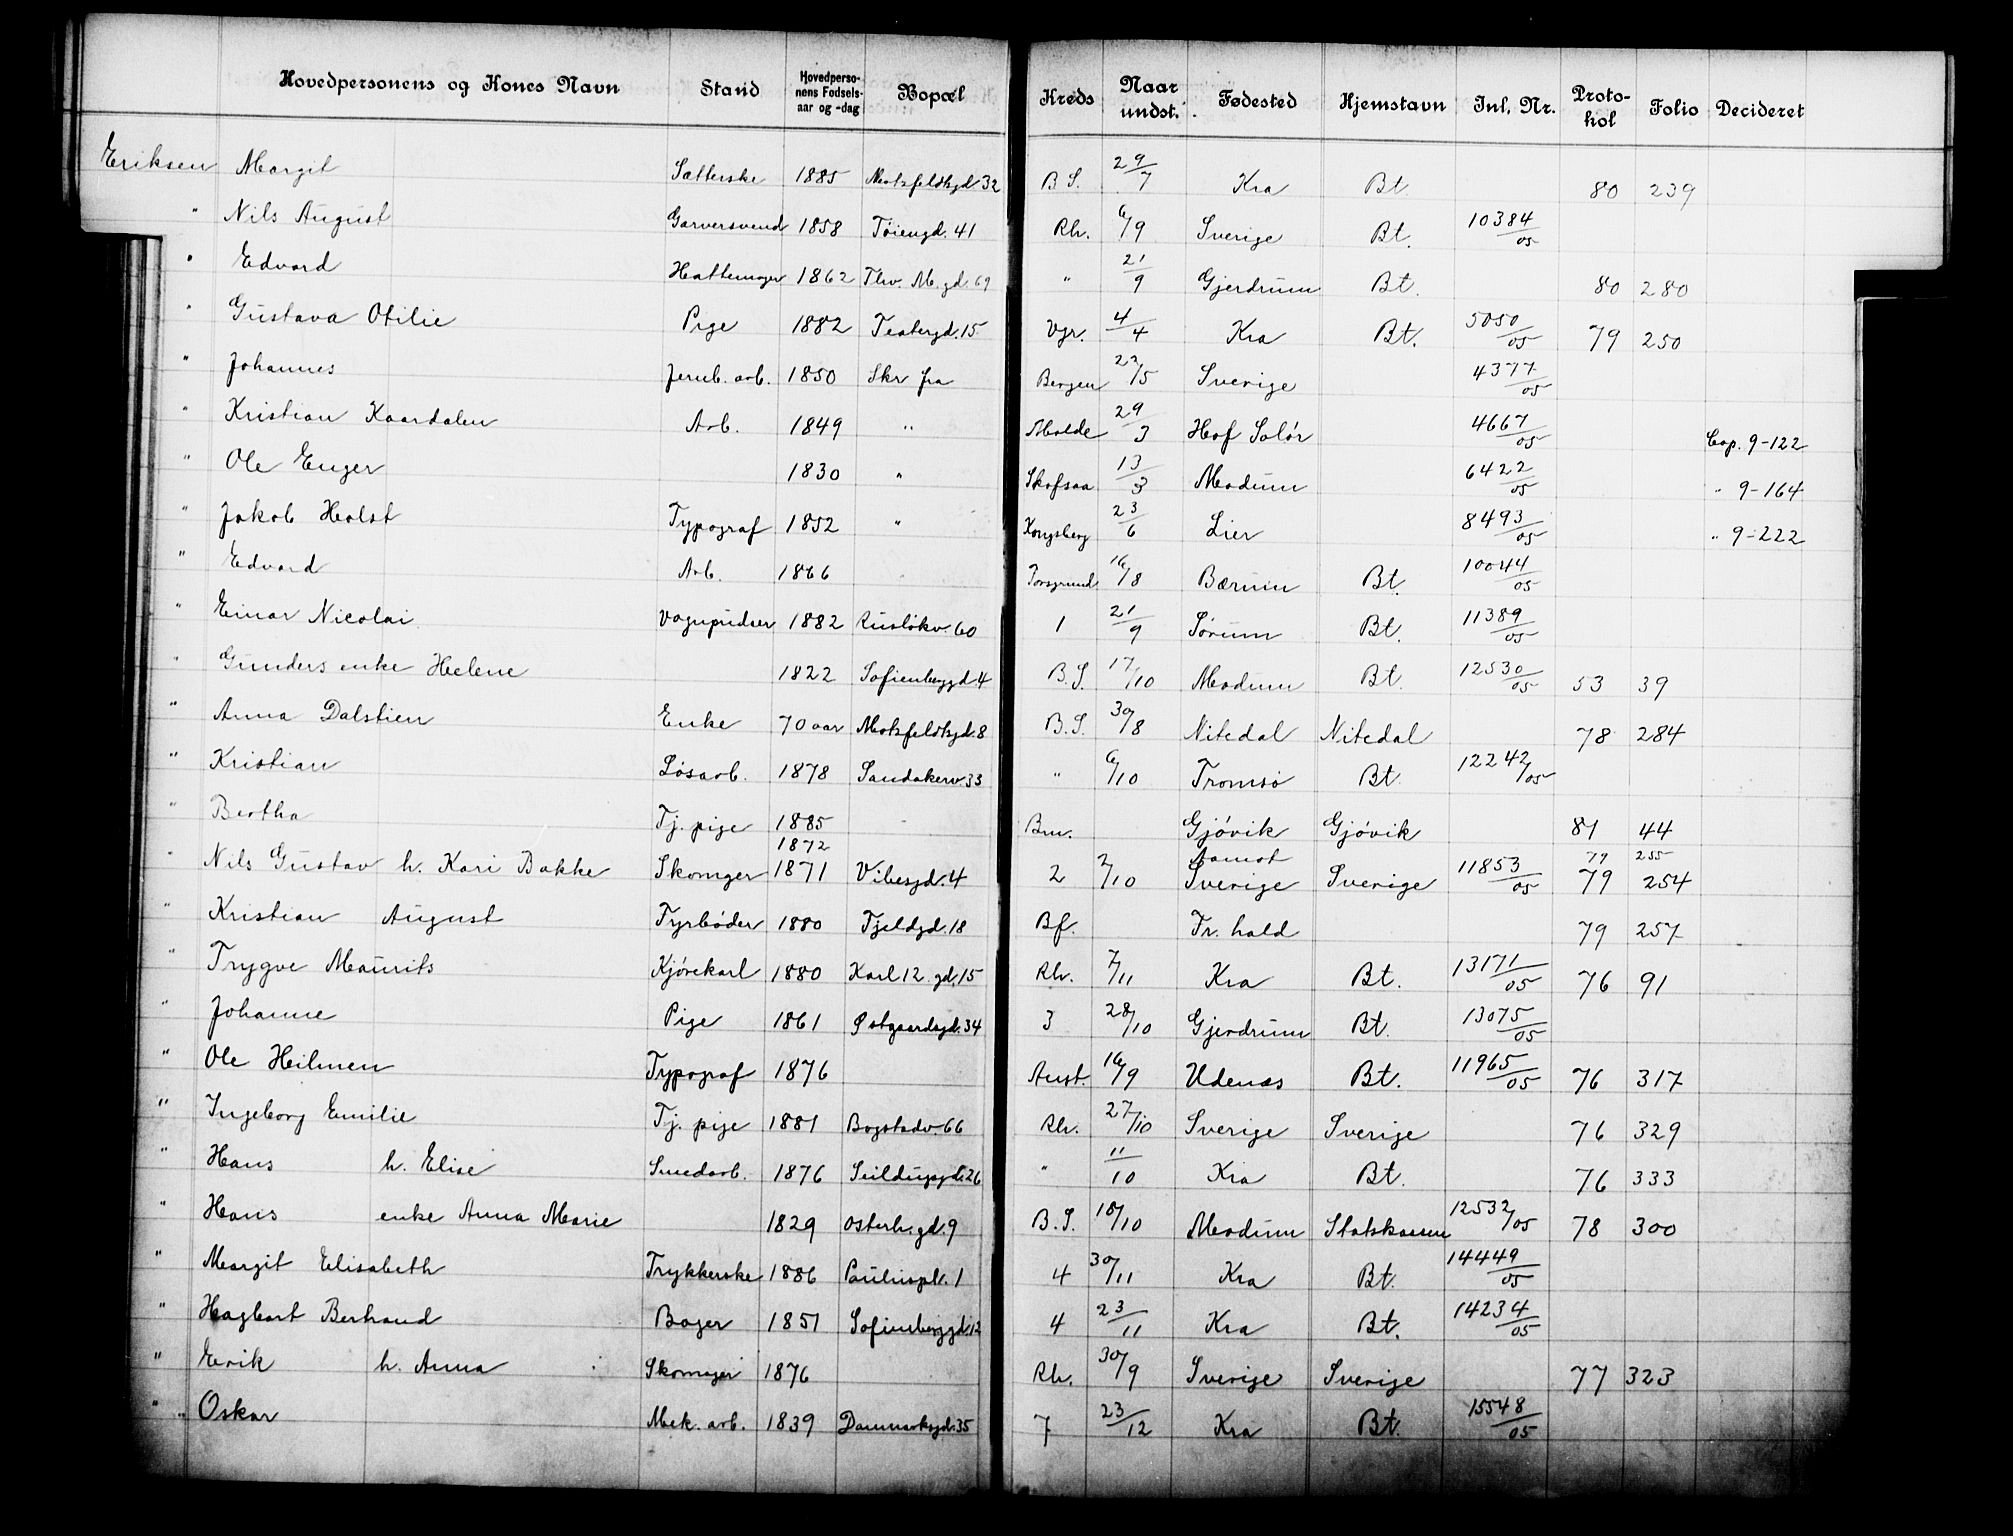 Hovedpersonens og Kones Navn | Stand | Hovedpersonens Fødselsaar og -dag | Bopæl | Kreds | Naar undst. | Fødested | Hjemstavn | Inl. Nr. | Protokol | Folio | Decideret
Eriksen Margit | Sætterske | 1885 | Motzfeldtsgd 32 | B S. | 29/7 | Kra | Bt. | 80 | 239
" Nils August | Garversvend | 1858 | Tøiengd. 41 | Rh. | 6/9 | Sverige | Bt. | 10384/05
" Edvard | Hattemager | 1862 | Thv. M. gd. 69 | " | 21/9 | Gjerdrum | Bt. | 80 | 280
" Gustava Otilie | Pige | 1882 | Teatergd. 15 | Vgr. | 4/4 | Kra | Bt. | 5050/05 | 79 | 250
" Johannes | Jernb. arb. | 1850 | Skr fra | Bergen | 22/5 | Sverige | 4377/05
" Kristian Kaardalen | Arb. | 1849 | " | Molde | 29/3 | Hof Solør | 4667/05 | Cop. 9-122
" Ole Enger | 1830 | " | 13/3 | Modum | 6422/05 | " 9-164
" Jakob Holst | Typograf | 1852 | " | Kongsberg | 23/6 | Lier | 8493/05 | " 9-222
" Edvard | Arb. | 1866 | Porsgrund | 16/8 | Bærum | Bt. | 10044/05
" Einar Nicolai | Vognpudser | 1882 | Ruseløkv. 60 | 1 | 21/9 | Sørum | Bt. | 11389/05
" Gunders enke Helene | 1822 | Sofienberggd 4 | B. S. | 17/10 | Modum | Bt. | 12530/05 | 53 | 39
" Anna Dalstien | Enke | 70 aar | Motzfeldtsgd. 8 | B. S. | 30/8 | Nitedal | Nitedal | 78 | 284
" Kristian | Løsarb. | 1878 | Sandakerv. 33 | " | 6/10 | Tromsø | Bt. | 12242/05
" Bertha | Tj. pige | 1885 | Bm. | Gjøvik | Gjøvik | 81 | 44
1872 | Aamot | 79 | 255
" Nils Gustav h. Kari Bakke | Skomager | 1871 | Vibesgd. 4 | 2 | 2/10 | Sverige | Sverige | 11853/05 | 79 | 254
" Kristian August | Fyrbøder | 1880 | Fjeldgd. 18 | Bf. | Fr. hald | 79 | 257
" Trygve Maurits | Kjørekarl | 1880 | Karl 12. gd. 15 | Rh. | 7/11 | Kra | Bt. | 13171/05 | 76 | 91
" Johanne | Pige | 1861 | Østgaardsgd. 34 | 3 | 28/10 | Gjerdrum | Bt. | 13075/05
" Ole Heilmen | Typograf | 1876 | Aust. | 16/9 | Udenæs | Bt. | 11965/05 | 76 | 317
" Ingeborg Emilie | Tj. pige | 1881 | Bogstadv. 66 | Rh. | 27/10 | Sverige | Sverige | 76 | 329
" Hans h. Elise | Smedarb. | 1876 | Seildugsgd. 26 | " | 11/10 | Kra | Bt. | 76 | 333
" Hans enke Anna Marie | 1829 | Osterh. gd. 9 | B. S. | 18/10 | Modum | Statskassen | 12532/05 | 78 | 300
" Margit Elisabeth | Trykkerske | 1886 | Pauluspl. 1 | 4 | 30/11 | Kra | Bt. | 14449/05
" Hagbart Bertrand | Bager | 1851 | Sofienberggd. 12 | 4 | 23/11 | Kra | Bt. | 14234/05
" Erik h. Anna | Skomager | 1876 | Rh. | 30/9 | Sverige | Sverige | 77 | 323
" Oskar | Mek. arb. | 1839 | Danmarksgd. 35 | 7 | 23/12 | Kra | Bt. | 15548/05